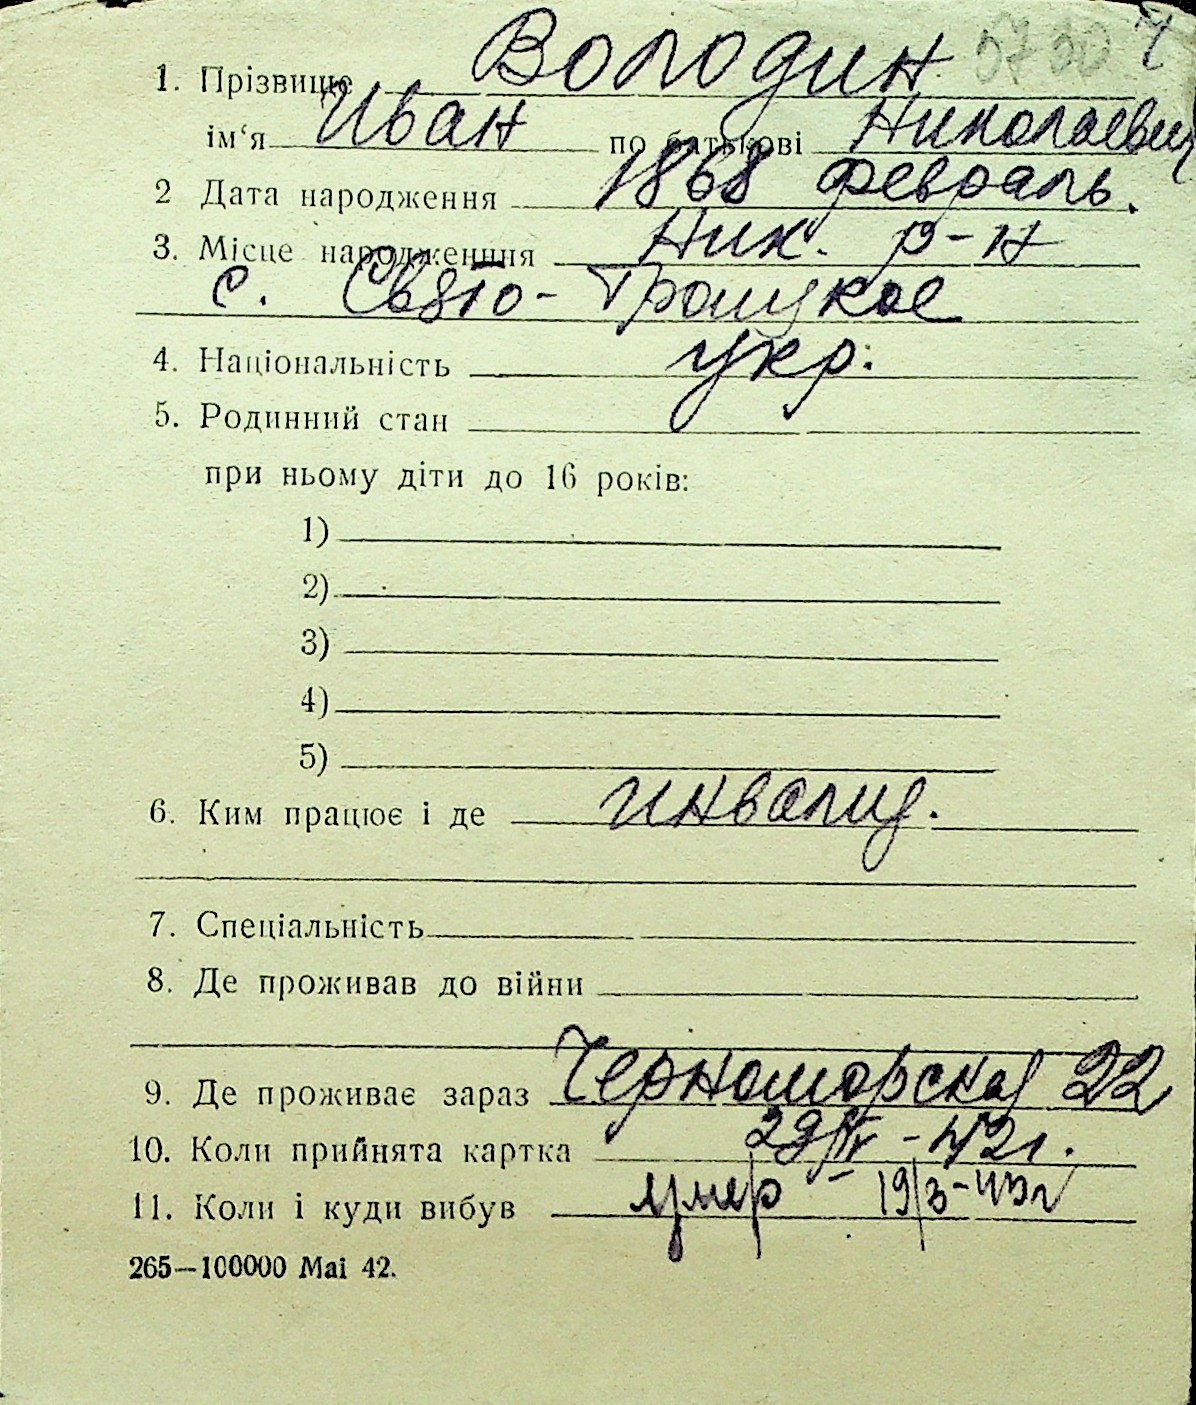 5730 4
1. Прізвище Володин
ім‘я Иван по батькові Николаевич
2 Дата народження 1868 февраль.
3. Місце народженння Ник. р-н
с. Свято-Троицкое
4. Національність укр.
5. Родинний стан
при ньому діти до 16 років:
1)
2)
3)
4)
5)
6. Ким працює і де инвалид.
7. Спеціальність
8. Де проживав до війни
9. Де проживає зараз Черноморская 22
10. Коли прийнята картка 29/IV-42г.
11. Коли і куди вибув умер - 19/3-43г
265—100000 Mai 42.